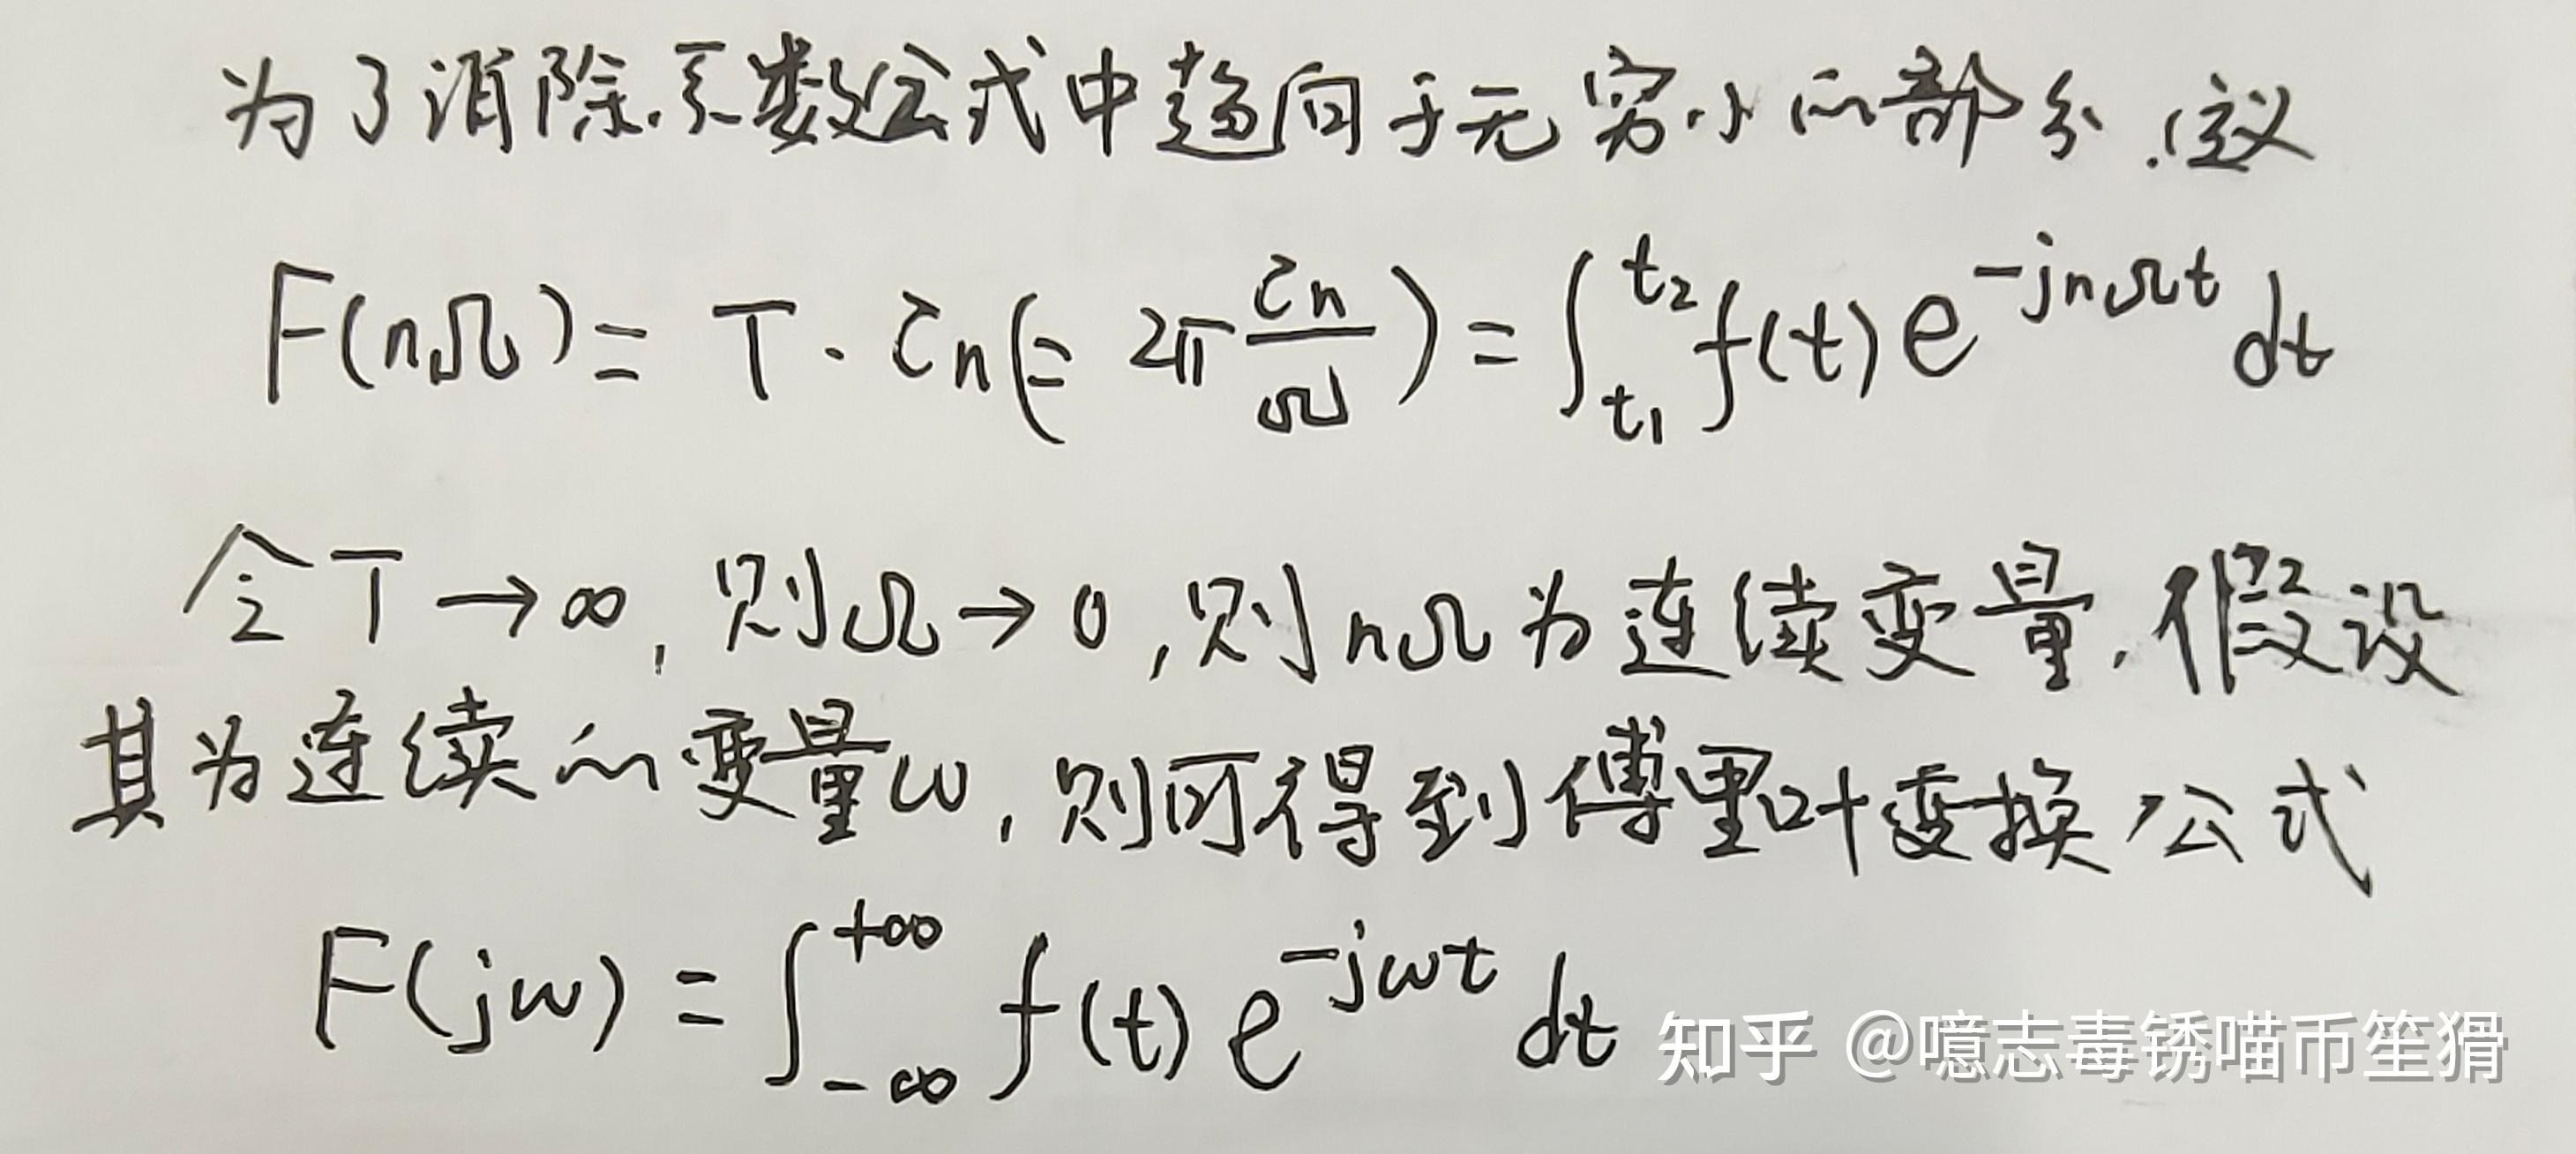 为了消除系数公式中趋向于无穷小的部分,定义
F(nΩ) = T · ċₙ (= 2π ċₙ/Ω) = ∫_{t₁}^{t₂} f(t) e^{-jnΩt} dt
令T→∞,则Ω→0,则nΩ为连续变量,假设
其为连续的变量ω,则可得到傅里叶变换公式
F(jω) = ∫_{-∞}^{+∞} f(t) e^{-jωt} dt
知乎 @噫志毒锈喵币笙猾